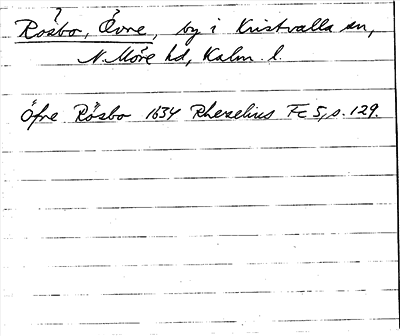 ?
Rosbo, Övre, by i Kristvalla sn,
N. Möre hd, Kalm. l.
Öfre Rösbo 1634 Rhezelius Fc 5, s. 129.